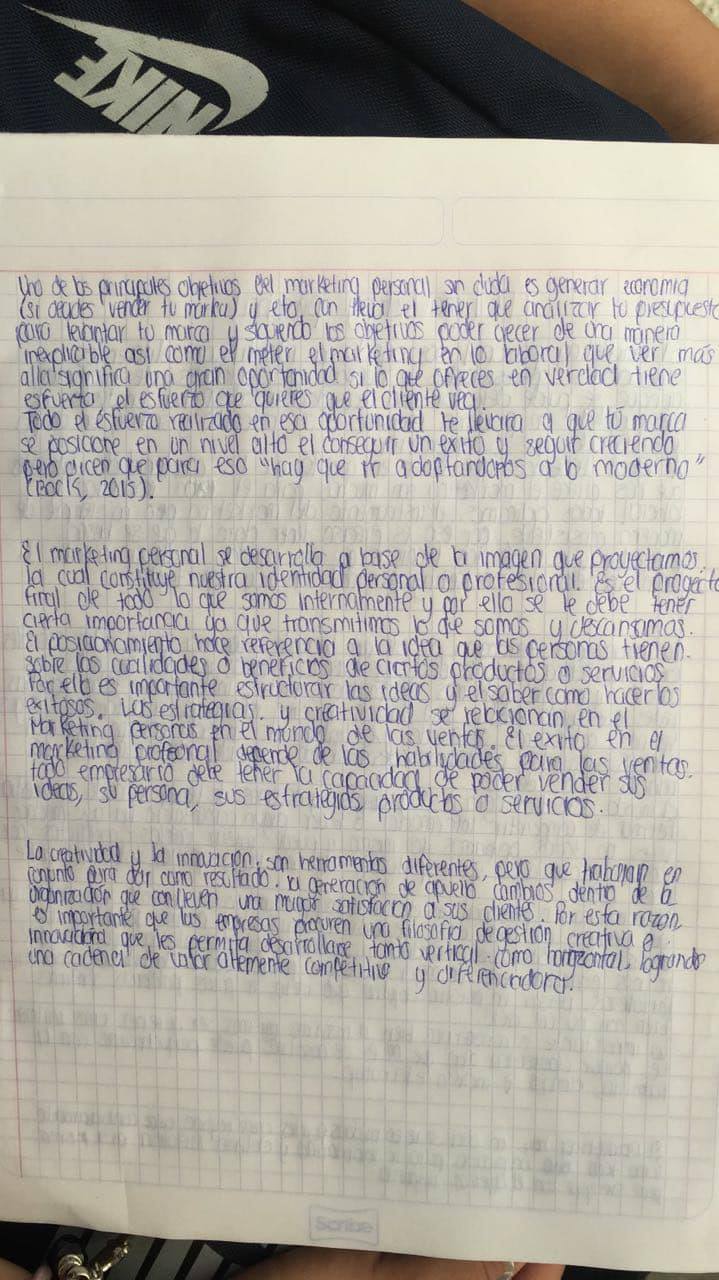 NIKE
Uno de los principales objetivos del marketing personal sin duda es generar economia
(si decides vender tu marka) y eto con lleva el tener que analizar tu presupuesto
para levantar tu marca y siguiendo los objetivos poder crecer de una manera
inexplicable asi como el meter el marketing en lo laboral que ver más
alla significa una gran oportunidad si lo que ofreces en verdad tiene
esfuerzo, el esfuerzo que quieres que el cliente vea.
Todo el esfuerzo realizado en esa oportunidad te llevara a que tú marca
se posicione en un nivel alto el conseguir un exito y seguir creciendo
pero dicen que para eso "hay que ir adoptandonos a lo moderno"
2015).
El marketing personal se desarrolla a base de la imagen que proyectamos.
la cual constituye nuestra identidad personal o profesional. es el proyecto
final de todo lo que somos internamente y por ello se le debe tener
cierta importancia ya que transmitimos lo que somos y
El posicionamiento hace referencia a la idea que las personas tienen.
sobre las cualidades o beneficios de ciertos productos o servicios
Por ello es importante estructurar las ideas y el saber como hacerlos
exitosos. Las estrategias. y creatividad se relacionan en el
Marketing personas en el mundo de las ventas. El exito en el
marketing profesional depende de las habilidades para las ventas.
todo empresario debe tener la capacidad de poder vender sus
ideas, su persona, sus estrategias productos o servicios.
La creatividad y la innovación, son herramentas diferentes, pero que trabajan en
conjunto para dar como resultado. la generación de aquello cambios dentro de la
organización que conlleven una mayor satisfacion a sus clientes. Por esta razon
es importante que las empresas procuren una filosofia de gestión creativa e
innovadora que les permita desarrollarse tanto vertical. como horizontal, logrando
una cadena de valor altemente competitiva y diferenciadora.
Scribe